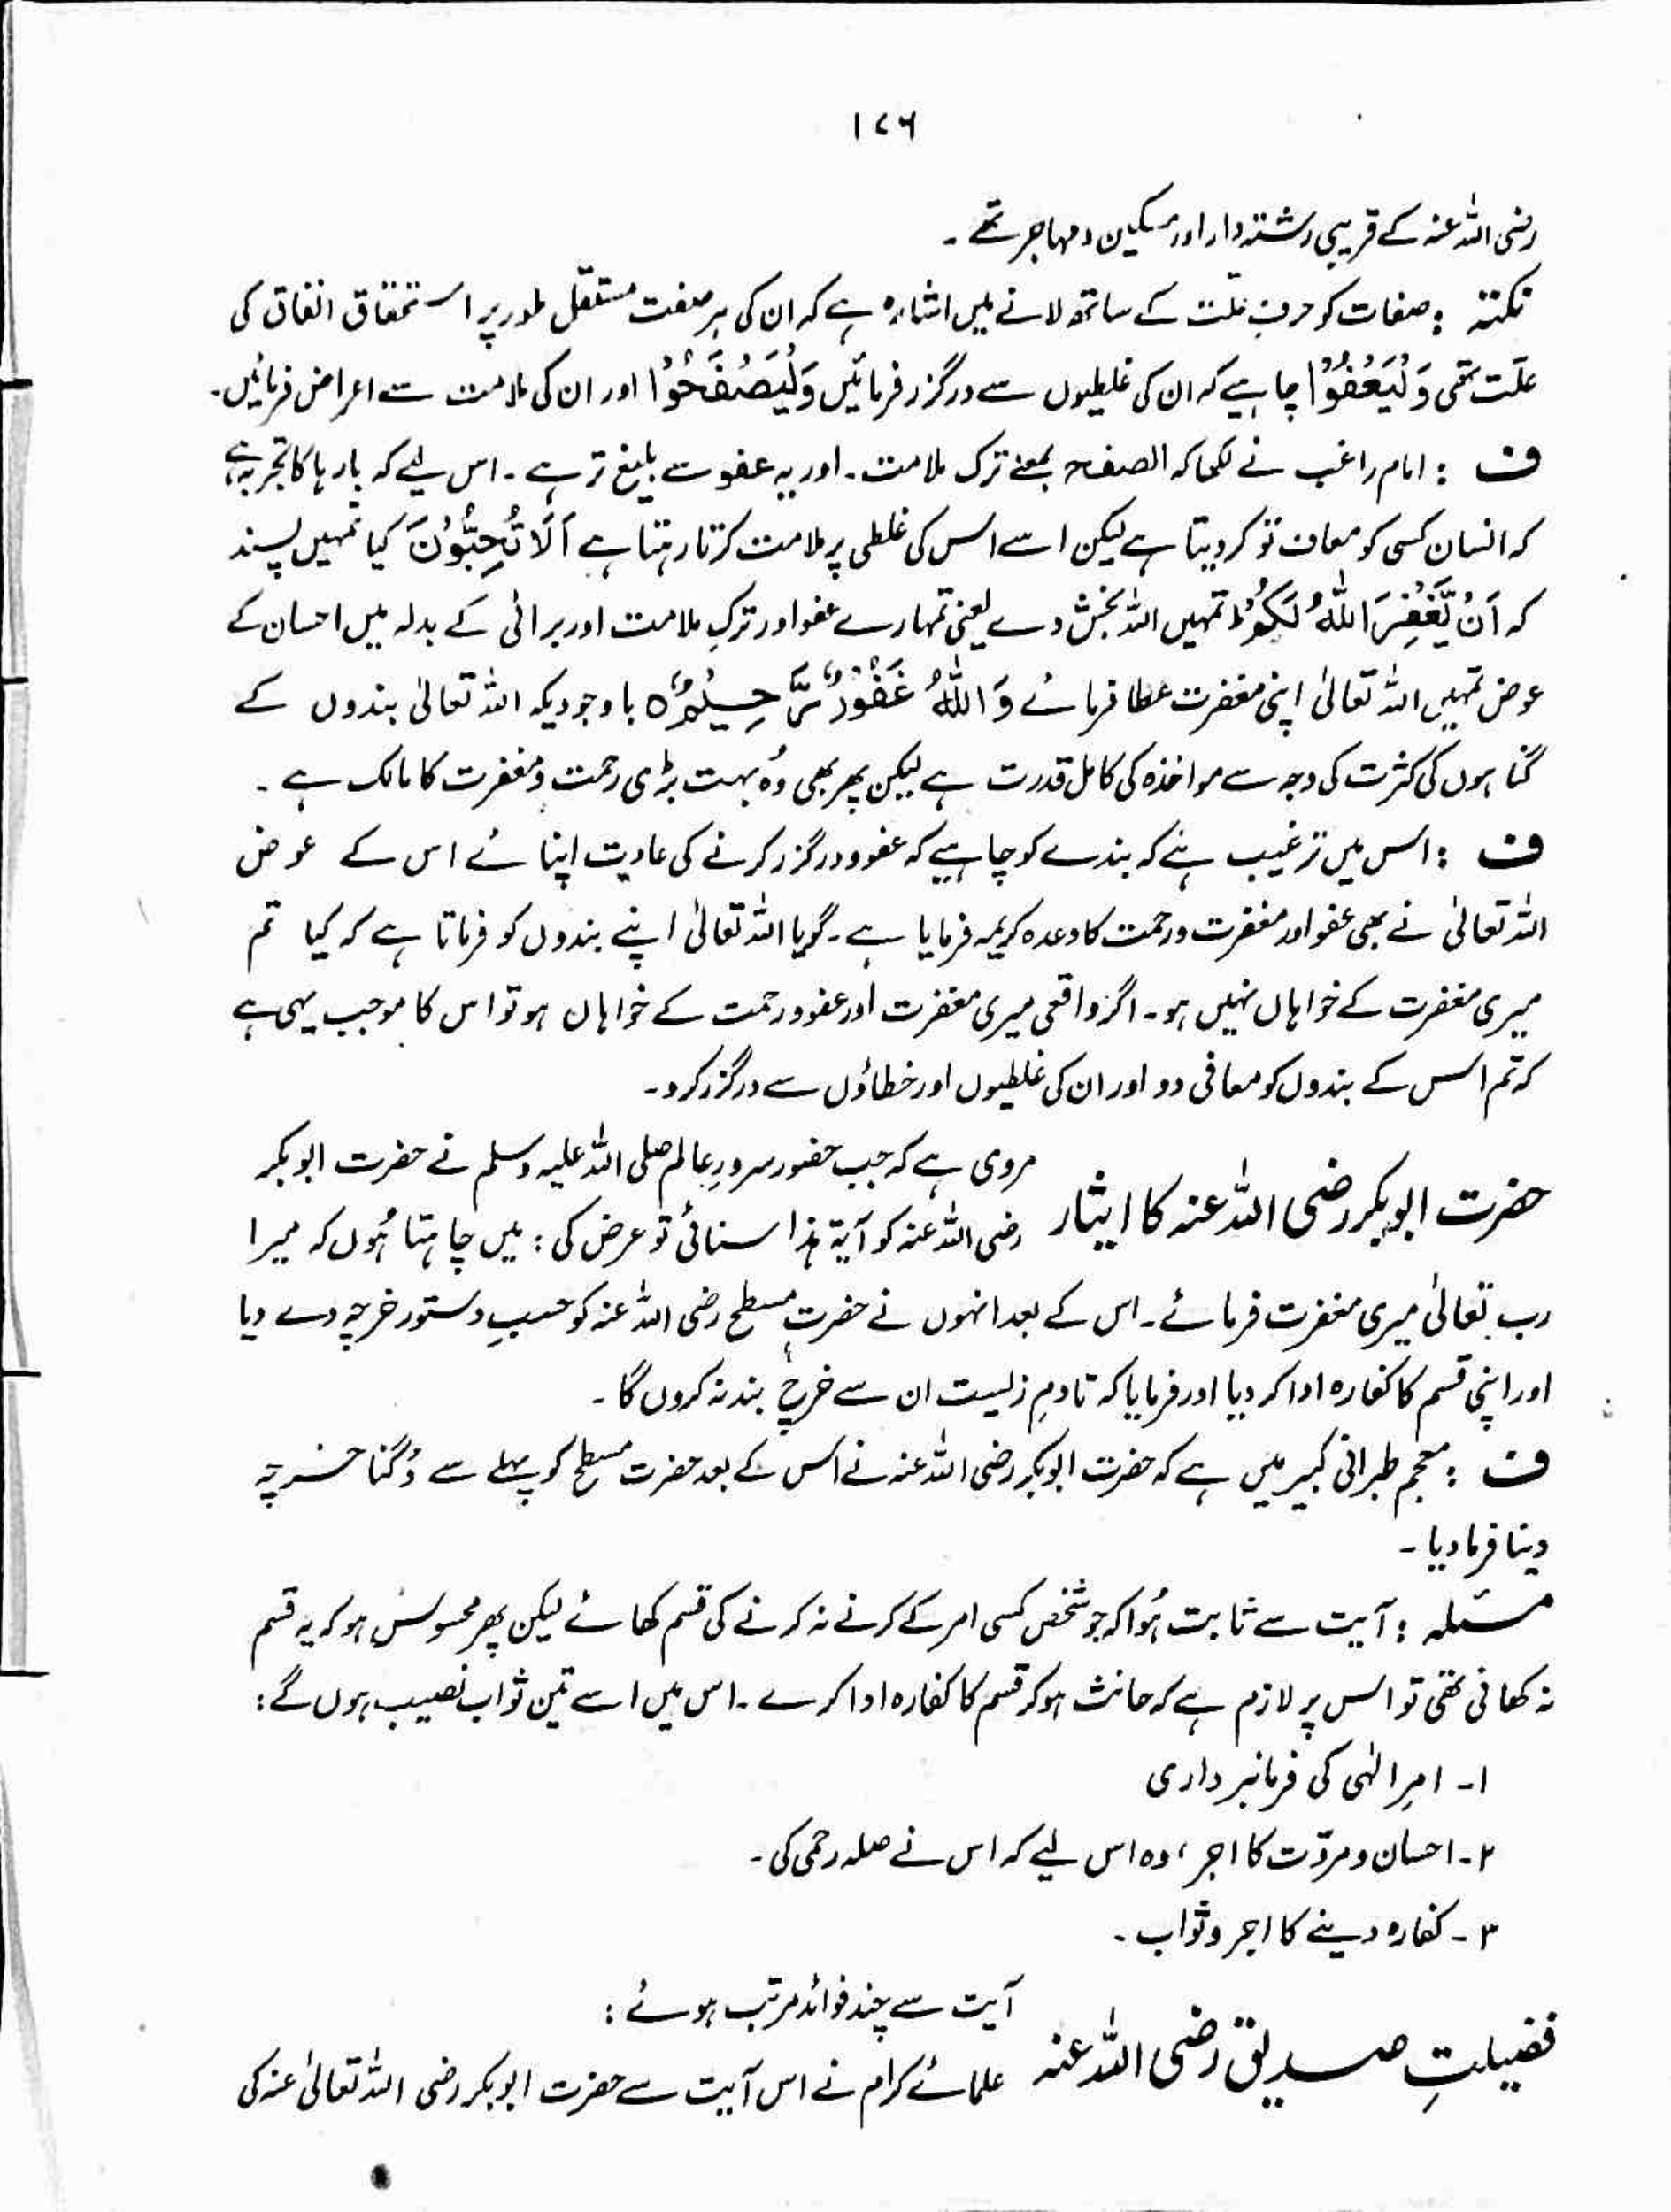 ۱۷۶
رضی اللہ عنہ کے قریبی رشتہ دار اور مسکین و مہاجر تھے ۔
نکتہ : صفات کو حرفِ علّت کے ساتھ لانے میں اشارہ ہے کہ ان کی ہر صفت مستقل طور پر استحقاق انفاق کی
علّت تھی وَلْیَعْفُوْا چاہیے کہ ان کی غلطیوں سے درگزر فرمائیں وَلْیَصْفَحُوْا اور ان کی ملامت سے اعراض فرمائیں۔
ف : امام راغب نے لکھا کہ الصفح بمعنے ترک ملامت ۔ اور یہ عفو سے بلیغ تر ہے ۔ اس لیے کہ بارہا کا تجربہ ہے
کہ انسان کسی کو معاف تو کر دیتا ہے لیکن اسے اس کی غلطی پر ملامت کرتا رہتا ہے اَلَا تُحِبُّوْنَ کیا تمہیں پسند
کہ اَنْ یَّغْفِرَ اللّٰهُ لَكُمْؕ تمہیں اللہ بخش دے یعنی تمہارے عفو اور ترکِ ملامت اور برائی کے بدلہ میں احسان کے
عوض تمہیں اللہ تعالیٰ اپنی مغفرت عطا فرمائے وَ اللّٰهُ غَفُوْرٌ رَّحِیْمٌ۝ باوجودیکہ اللہ تعالیٰ بندوں کے
گناہوں کی کثرت کی وجہ سے مواخذہ کی کامل قدرت ہے لیکن پھر بھی وُہ بہت بڑی رحمت و مغفرت کا مالک ہے ۔
ف : اس میں ترغیب ہے کہ بندے کو چاہیے کہ عفو و درگزر کرنے کی عادت اپنائے اس کے عوض
اللہ تعالیٰ نے بھی عفو اور مغفرت و رحمت کا وعدہ کریمہ فرمایا ہے ۔ گویا اللہ تعالیٰ اپنے بندوں کو فرماتا ہے کہ کیا تم
میری مغفرت کے خواہاں نہیں ہو ۔ اگر واقعی میری مغفرت اور عفو و رحمت کے خواہاں ہو تو اس کا موجب یہی ہے
کہ تم اس کے بندوں کو معافی دو اور ان کی غلطیوں اور خطاؤں سے درگزر کرو ۔
حضرت ابوبکر رضی اللہ عنہ کا ایثار
مروی ہے کہ جب حضور سرورِ عالم صلی اللہ علیہ وسلم نے حضرت ابوبکر
رضی اللہ عنہ کو آیۃ ہذا سنائی تو عرض کی : میں چاہتا ہُوں کہ میرا
رب تعالیٰ میری مغفرت فرمائے ۔ اس کے بعد انہوں نے حضرت مسطح رضی اللہ عنہ کو حسبِ دستور خرچہ دے دیا
اور اپنی قسم کا کفارہ ادا کر دیا اور فرمایا کہ تادمِ زلیست ان سے خرچ بند نہ کروں گا ۔
ف : معجم طبرانی کبیر میں ہے کہ حضرت ابوبکر رضی اللہ عنہ نے اس کے بعد حضرت مسطح کو پہلے سے دُگنا خرچہ
دینا فرما دیا ۔
مسئلہ : آیت سے ثابت ہُوا کہ جو شخص کسی امر کے کرنے نہ کرنے کی قسم کھائے لیکن پھر محسوس ہو کہ یہ قسم
نہ کھانی تھی تو اس پر لازم ہے کہ حانث ہو کر قسم کا کفارہ ادا کرے ۔ اس میں اسے تین ثواب نصیب ہوں گے :
۱ ۔ امرِ الٰہی کی فرمانبرداری
۲ ۔ احسان و مروّت کا اجر ، وہ اس لیے کہ اس نے صلہ رحمی کی ۔
۳ ۔ کفارہ دینے کا اجر و ثواب ۔
فضیلتِ صدیق رضی اللہ عنہ
آیت سے چند فوائد مرتب ہوئے :
علمائے کرام نے اس آیت سے حضرت ابوبکر رضی اللہ تعالیٰ عنہ کی